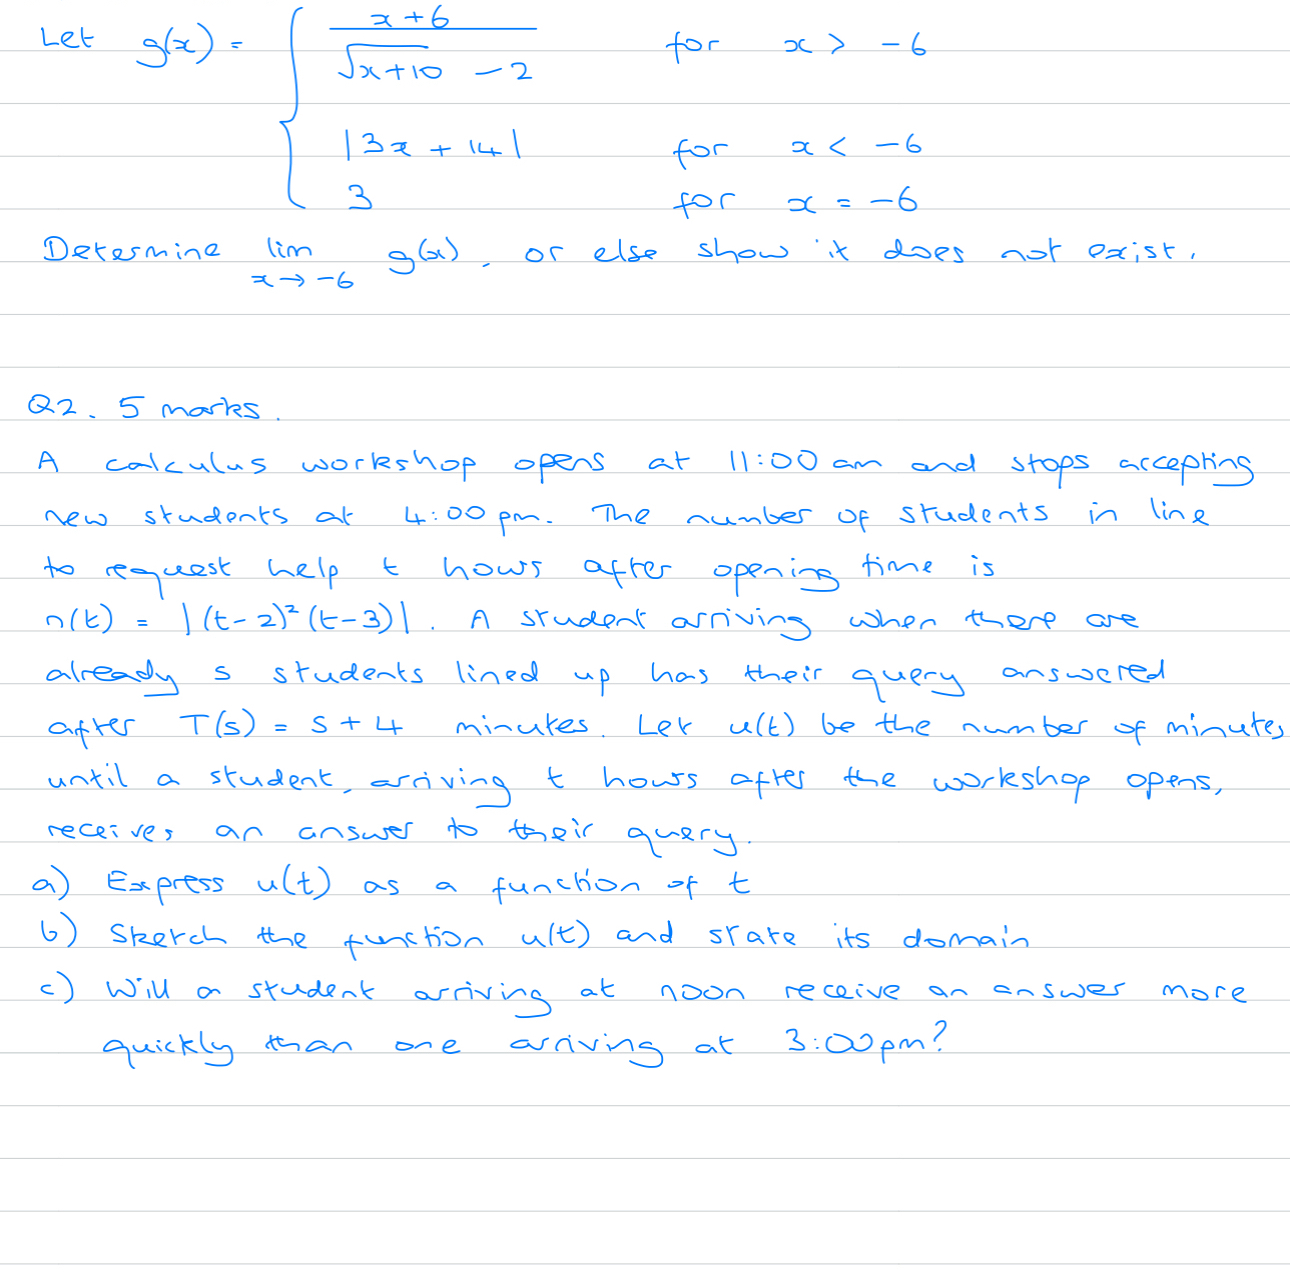 Let g(x) = { x+6 / √x+10 - 2 for x > -6
|3x + 14| for x < -6
3 for x = -6
Determine lim x→-6 g(x), or else show it does not exist.
Q2. 5 marks.
A calculus workshop opens at 11:00 am and stops accepting
new students at 4:00 pm. The number of students in line
to request help t hours after opening time is
n(t) = |(t-2)²(t-3)|. A student arriving when there are
already s students lined up has their query answered
after T(s) = s + 4 minutes. Let u(t) be the number of minutes
until a student, arriving t hours after the workshop opens,
receives an answer to their query.
a) Express u(t) as a function of t
b) Sketch the function u(t) and state its domain
c) Will a student arriving at noon receive an answer more
quickly than one arriving at 3:00pm?